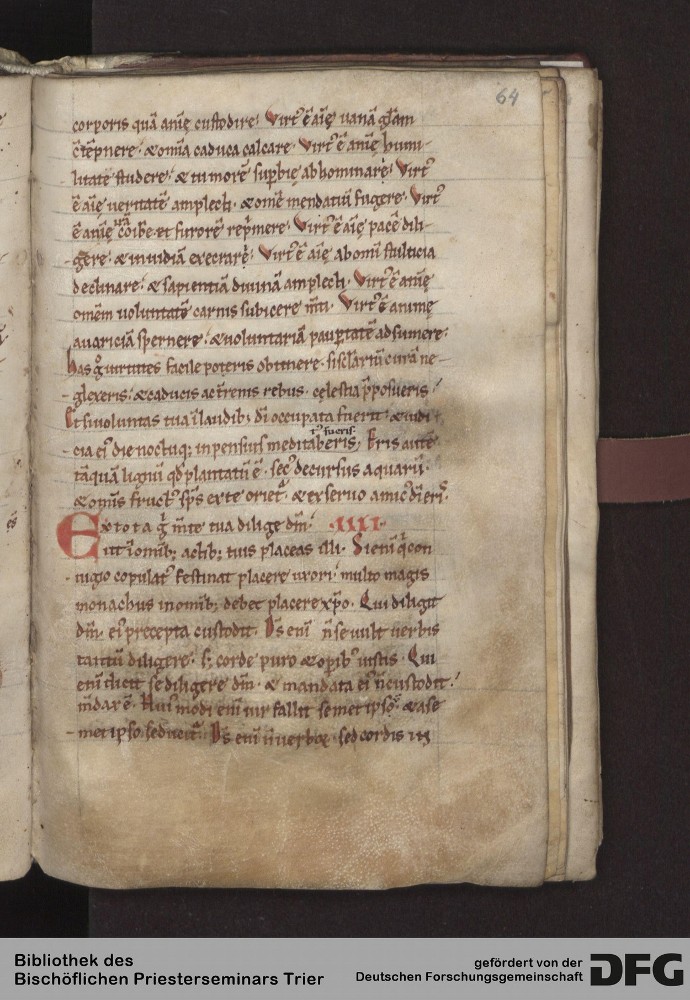 64
corporis quā anię custodire. Virt᷒ ē aīę uanā gl̄am
c̄tēpnere. & om̄ia caduca calcare. Virt᷒ ē anię humi-
litatē studere. & tumorē supbię abhominare. Virt᷒
ē aīę ueritatē amplecti. & om̄ē mendatiū fugere. Virt᷒
ē anię irā cōibe et furorē rep̄mere. Virt᷒ ē aīę pacē dili-
-gere. & inuidiā execrare. Virt᷒ ē aīę abomī stulticia
declinare. & sapientiā diuinā amplecti. Virt᷒ ē anię
omēm uoluntatē carnis subicere m̄ti. Virt᷒ ē anımę
auariciā spernere. & uoluntariā paupertatē adsumere.
has g̊ uirtutes facile poteris obtinere. si sc̄lariū curā ne-
-glexeris. & caducis ac t̄renis rebus celestia p̄posueris.
Et si uoluntas tua ī laudib; dī occupata fuerit. & iudi-
ı᷒ fueris.
-cia ei᷒ die noctuq; inpensius meditaberis. Eris autē
tāquā lignū qd̄ plantatū ē. sec᷒ decursus aquarū.
& om̄is fruct᷒ sp̄s ex te oriet᷒. & ex seruo amic᷒ dī eri᷒.
Ex tota g̊ m̄te tua dilige dm̄. .IIII.
Vt ī omib; actib; tuis placeas illi. Si enī q̇ con
-iugio copulat᷒ festinat placere uxori. multo magis
monachus in omib; debet placere xp̄o. Qui diligit
dm̄. ei᷒ precepta custodit. Ds̄ enī n̄ se uult uerbis
tantū diligere. s; corde puro & opib᷒ iustis. Qui
enī dicit se diligere dm̄. & mandata ei᷒ n̄ custodit.
m̄dax ē. Hui᷒modi enī uir fallit semet ipsū. & a se
-met ipso seducit᷒. Ds̄ enī n̄ uerboꝝ. sed cordis
Bibliothek des
Bischöflichen Priesterseminars Trier
gefördert von der
Deutschen Forschungsgemeinschaft
DFG